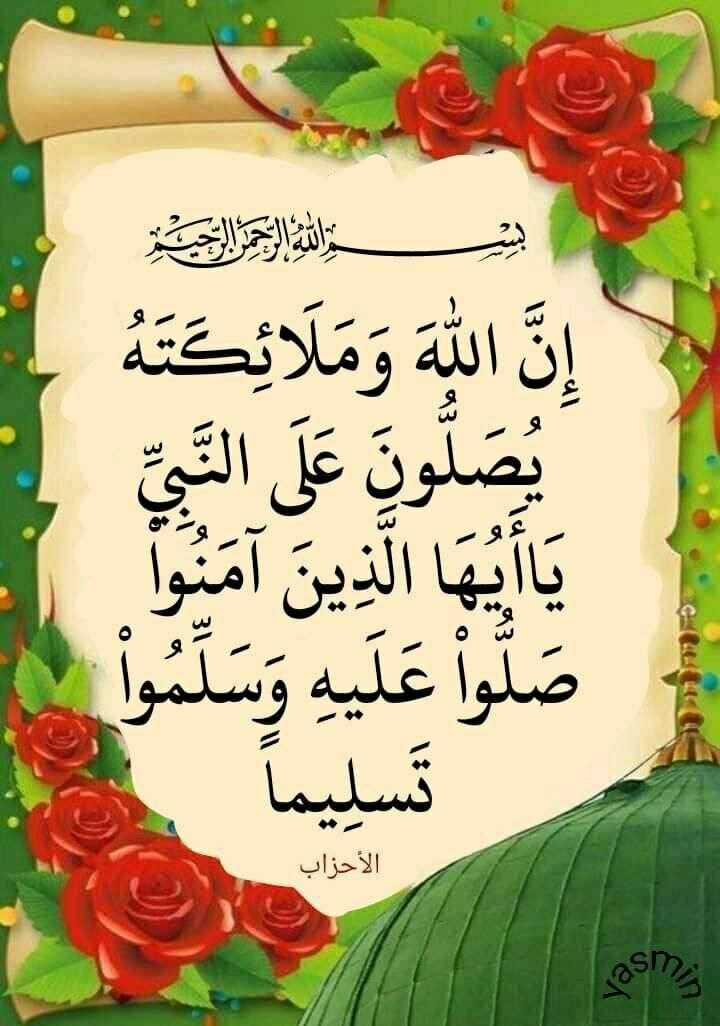 بِسْــــــمِ اللَّهِ الرَّحْمَٰنِ الرَّحِيمِ
إِنَّ اللَّهَ وَمَلَائِكَتَهُ
يُصَلُّونَ عَلَى النَّبِيِّ
يَاأَيُّهَا الَّذِينَ آمَنُواْ
صَلُّواْ عَلَيهِ وَسَلِّمُواْ
تَسلِيماً
الأحزاب
yasmin